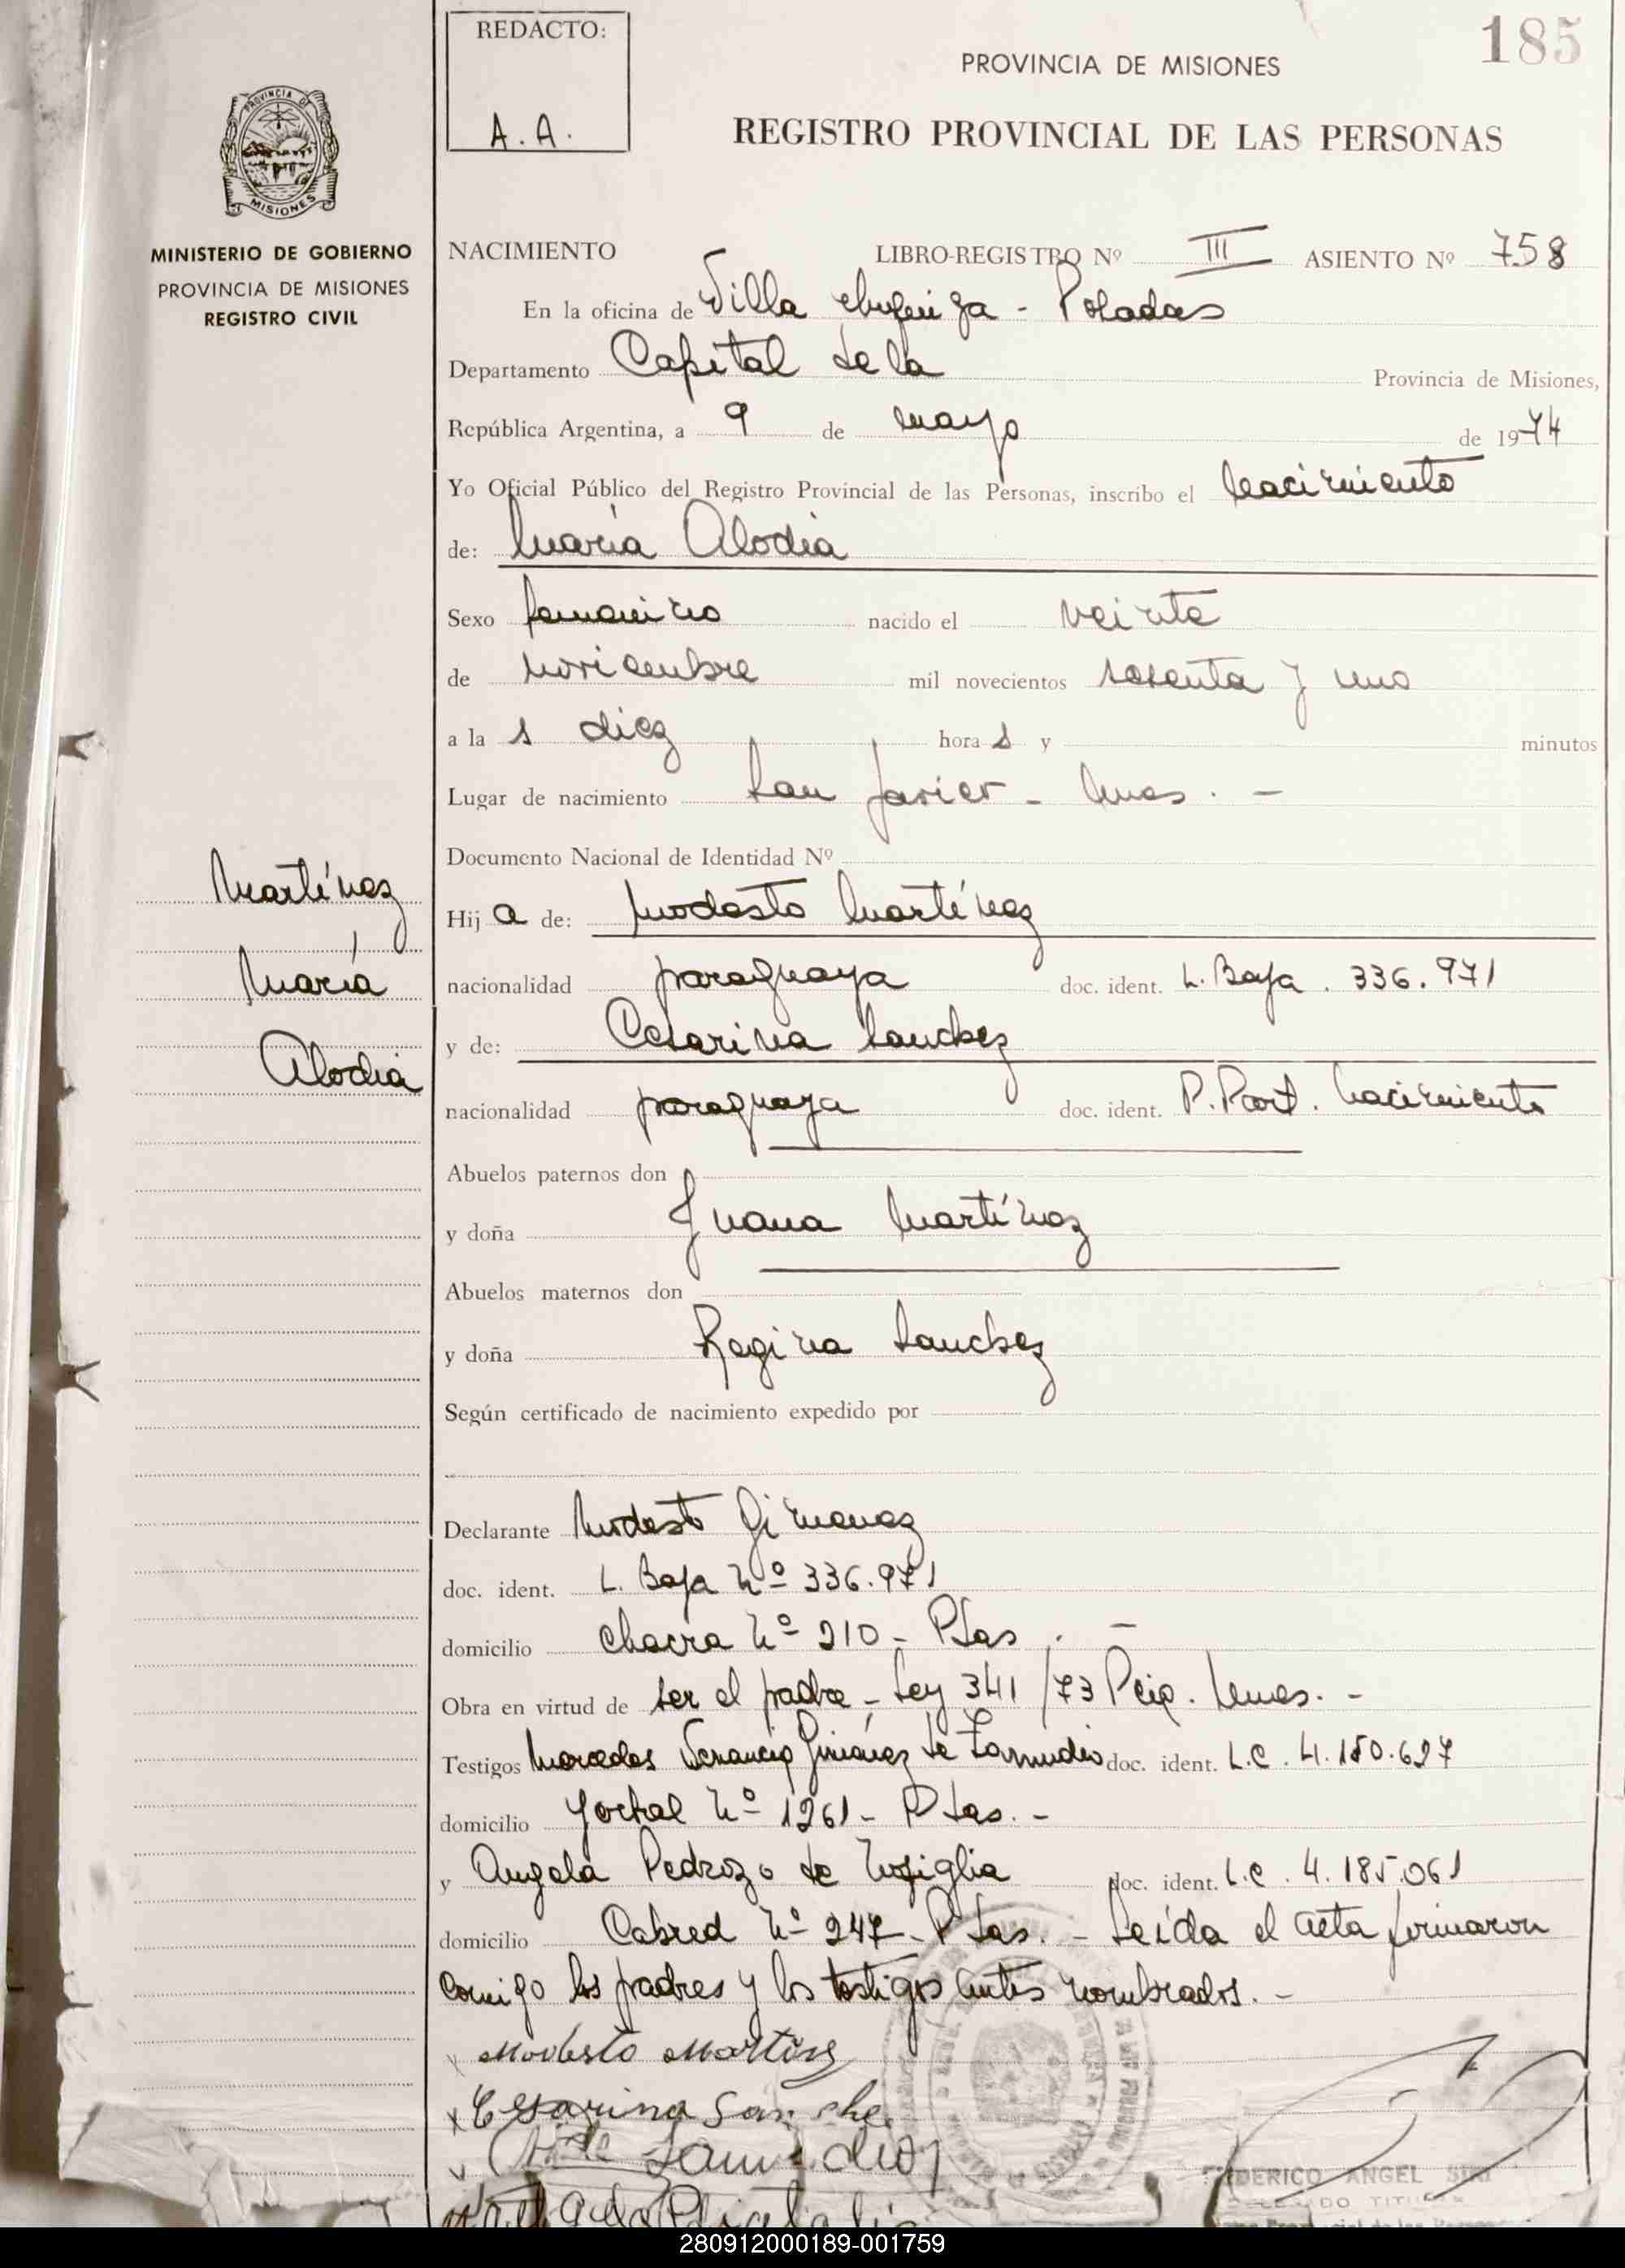 REDACTO:
A. A.
185
PROVINCIA DE MISIONES
REGISTRO PROVINCIAL DE LAS PERSONAS
PROVINCIA DE
MISIONES
MINISTERIO DE GOBIERNO
PROVINCIA DE MISIONES
REGISTRO CIVIL
NACIMIENTO LIBRO-REGISTRO Nº III ASIENTO Nº 758
En la oficina de Villa - Posadas
Departamento Capital de la Provincia de Misiones,
República Argentina, a 9 de mayo de 1974
Yo Oficial Público del Registro Provincial de las Personas, inscribo el Nacimiento
de: María Alodia
Sexo femenino nacido el veinte
de noviembre mil novecientos sesenta y uno
a la s diez hora s y minutos
Lugar de nacimiento San Javier - Mnes. -
Documento Nacional de Identidad Nº
Martínez
María
Alodia
Hij a de: Modesto Martínez
nacionalidad paraguaya doc. ident. L. Baja. 336.971
y de: Cesarina Sanchez
nacionalidad paraguaya doc. ident. P. Part. Nacimiento
Abuelos paternos don
y doña Juana Martínez
Abuelos maternos don
y doña Regina Sanchez
Según certificado de nacimiento expedido por
Declarante Modesto Gimenez
doc. ident. L. Baja Nº 336.971
domicilio chacra Nº 210 - Psas. -
Obra en virtud de ser el padre - Ley 341/73 Mnes. -
Testigos Mercedes Venancia Giménez de Zamudio doc. ident. L.C. 4.150.627
domicilio Nº 1261 - Psas. -
y Angela Pedrozo de doc. ident. L.C. 4.185.061
domicilio Cabred Nº 247 - Psas. - Leída el acta firmaron
comigo los padres y los testigos antes nombrados. -
x Modesto Martins
x Cesarina Sanche
Zamudio
FEDERICO ANGEL
280912000189-001759